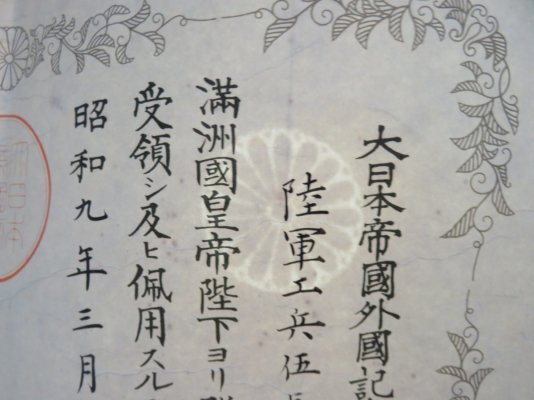 大日本帝國外國記
陸軍工兵伍長
滿洲國皇帝陛下ヨリ
受領シ及ヒ佩用スル
昭和九年三月